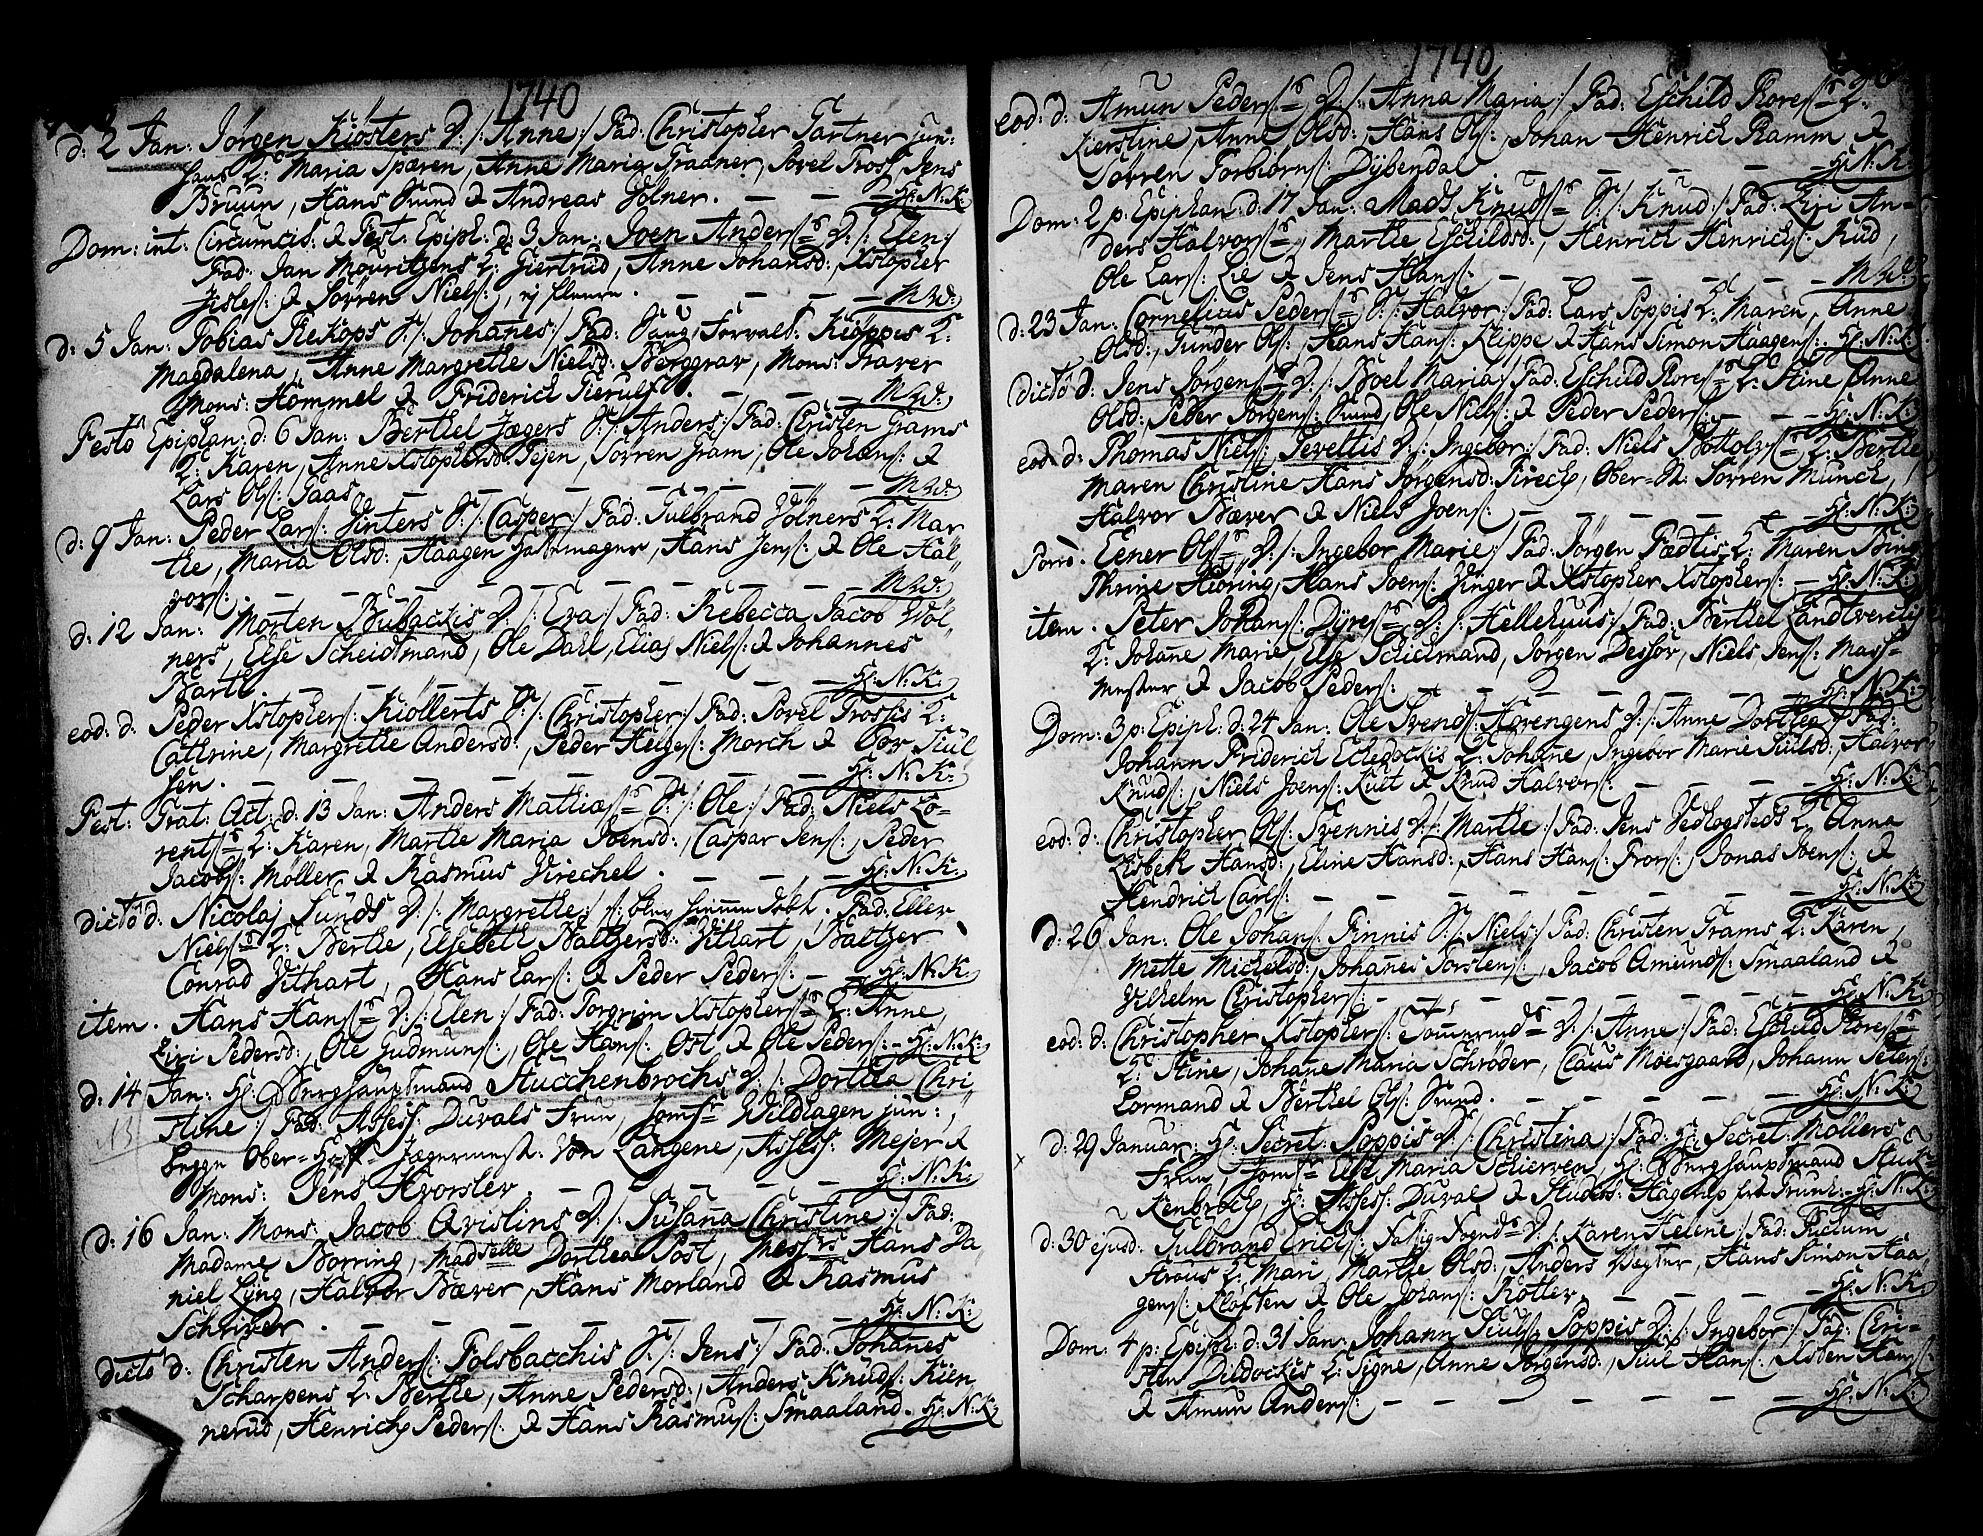 1740
d: 2 Jan: Jørgen Kiösters D: /: Anne :/ Fad: Christopher Gartner jun:
hans K: Maria Spæren, Anne Maria Gradner, Povel Tross, Jens
Bruun, Hans Svend & Andreas Völner. — — Hr: N: K:
Dom: int: Circumcis: & Fest: Epiph: d: 3 Jan: Joen Anders: D: /: Elen :/
Fad: Jan Mouritzens K: Giertrud, Anne Johansd:, Xstopher
Gisles: & Sörren Niels:, — — — M W:
d: 5 Jan: Tobias Riekops S: /: Johañes :/ Fad: Torvald: Kiöppis K:
Magdalena, Anne Margrethe Nielsd: Borggrav, Mons: Graver
Mons: Hommel & Friderich Gierulf. — — — M W:
Festo Epiphan: d: 6 Jan: Berthel Jægers S: /: Anders :/ Fad: Christen Grams
K: Karen, Anne Xstophersd: Pejen, Sörren Gram, Ole Johans: &
Lars Ols: Saas — — — M W:
d: 9 Jan: Peder Lars: Vinters S: /: Casper :/ Fad: Gulbrand Völners K: Mar
the, Maria Olsd:, Haagen Hattmager, Hans Jens: & Ole Hal„
vors: — — — M W:
d: 12 Jan: Morten Bubackis D: /: Eva :/ Fad: Rebecca Jacob Völ„
ners, Else Scheidtmand, Ole Dahl, Elias Niels: & Johannes
Bartl. — — — Hr: N: K:
eod: d: Peder Xstophers: Kiöllerts S: /: Christopher :/ Fad: Povel Trossis K:
Cathrine, Margrethe Andersd:, Peder Helges: Morch & Iver Juel
sen. — — — Hr: N: K:
Fest: Grat: Act: d: 13 Jan: Anders Mathias: S: /: Ole :/ Fad: Niels Lo-
rents: K: Karen, Marthe Maria Joensd:, Caspar Jens:, Peder
Jacobs: Möller & Rasmus Virechel. — — — Hr: N: K:
dicto d: Nicolaj Lunds D: /: Margrethe :/ blev hiemme døbt. Fad: Eller
Niels: K: Berthe, Elsebeth Baltzersd: Vithart, Baltzer
Conrad Vithart, Hans Lars: & Peder Peders: — Hr: N: K:
item. Hans Hans: D: /: Elen :/ Fad: Torgrim Xstophers: K: Anne,
Liri Pedersd:, Ole Gudmuns:, Ole Hans: Ost & Ole Peders: — Hr: N: K:
d: 14 Jan: Hr: Berghauptmand Stucchenbrochs D: /: Dorthea Chri
stine :/ Fad: Assess: Duvals Frun, Jomfr: Wildhagen jun:,
begge Ober-Hoff- Jægermest: Von Langene, Assess: Mejer &
Mons: Jens Hvorslev — — — Hr: N: K:
13
d: 16 Jan: Mons: Jacob Qvistins D: /: Susaña Christine :/ Fad:
Madame Borring, Madselle Dorthea Post, Messrs Hans Da
niel Lyng, Halvor Bæver, Hans Morland & Rasmus
Schriver. — — — Hr: N: K:
dicto d: Christen Anders: Folsbacchis S: /: Jens :/ Fad: Johañes
Scharpens K: Berthe, Anne Pedersd:, Anders Knuds: Kien
nerud, Henrich Peders: & Hans Rasmus: Smaaland. Hr: N: K:
1740
eod: d: Amun Peders: D: /: Anna Maria :/ Fad: Eschild Rores: K:
Kierstine, Anne Olsd:, Hans Ols:, Johan Henrich Ramm &
Sörren Torbiörns: Dybendal — Hr: N: K:
Dom: 2 p: Epiphan: d: 17 Jan: Mads Knuds: S: /: Knud :/ Fad: Liri An-
ders Halvors:, Marthe Eschildsd:, Henrich Henrichs: Rud,
Ole Lars: Lie & Jens Hans: — — — M W:
d: 23 Jan: Cornelius Peders: S: /: Halvor :/ Fad: Lars Poppis K: Maren, Anne
Olsd:, Gunder Ols:, Hans Hans: Klippe & Hans Simon Haagens: Hr: N: K:
dicto d: Jens Jörgens: D: /: Boel Maria :/ Fad: Eschild Rores: K: Stine, Anne
Olsd:, Peder Jörgens: Rund, Ole Niels: & Peder Peders: — Hr: N: K:
eod: d: Thomas Niels: Tevettis D: /: Ingebor :/ Fad: Niels Bottolvs: K: Berthe,
Maren Christine Hans Jörgensd: Kirech, Ober-B: Sörren Munch,
Halvor Bæver & Niels Joens: — — — Hr: N: K:
Porrò. Eener Ols: D: /: Ingebor Marie :/ Fad: Jörgen Fædtis K: Maren
Thrine Hiöring, Hans Joens: Vinger & Xstopher Xstophers: — Hr: N: K:
item. Peter Johans: Dyres: D: /: Hellehuus :/ Fad: Berthel Landtveretis
K: Johañe Marie, Else Schielmand, Jörgen Dessör, Niels Jens: Mass-
mester & Jacob Peders: — — — Hr: N: K:
Dom: 3 p: Epiph: d: 24 Jan: Ole Svends: Havengens D: /: Anne Dorthea :/ Fad:
Johann Friderich Eclegockis K: Johañe, Ingebor Marie Juulsd:, Halvor
Knuds:, Niels Joens: Kult & Knud Halvors: — Hr: N: K:
eod: d: Christopher Ols: Svennis D: /: Marthe :/ Fad: Jens Vedlogsteds K: Anna
Lisbeth Hansd:, Eline Hansd:, Hans Hans: Fros:, Jonas Joens: &
Hendrich Carls: — — — Hr: N: K:
d: 26 Jan: Ole Johans: Finnis S: /: Niels :/ Fad: Christen Grams K: Karen,
Mette Michelsd:, Johañes Torstens:, Jacob Amunds: Smaaland &
Vilhelm Christophers: — — — Hr: N: K:
eod: d: Christopher Xstophers: D: /: Anne :/ Fad: Eschild Rores:
K: Stine, Johañe Maria Schröder, Claus Moesgaard, Johann Peter
Lormand & Berthel Ols: Svend. — — — Hr: N: K:
d: 29 Januar: Hr: Secret: Poppis D: /: Christina :/ Fad: Hr: Secret: Möllers
Frun, Jomfr: Else Maria Schierven, Hr: Berghauptmand Stuc-
kenbroch, Hr: Assess: Duval & Studios: Hagerup Hr: N: K:
d: 30 ejusd: Gulbrand Erichs: D: /: Karen Helene :/ Fad:
Straus K: Mari, Marthe Olsd:, Anders Vegter, Hans Simon Haa
gens: Kloften & Ole Johans: Rotter. — — — Hr: N: K:
Dom: 4 p: Epiph: d: 31 Jan: Johann Juuls: Poppis D: /: Ingebor :/ Fad: Chri-
sten Duldockis K: Signe, Anne Jörgensd:, Juul Hans:, Xsten Hans:
& Amun Anders: — — — Hr: N: K: